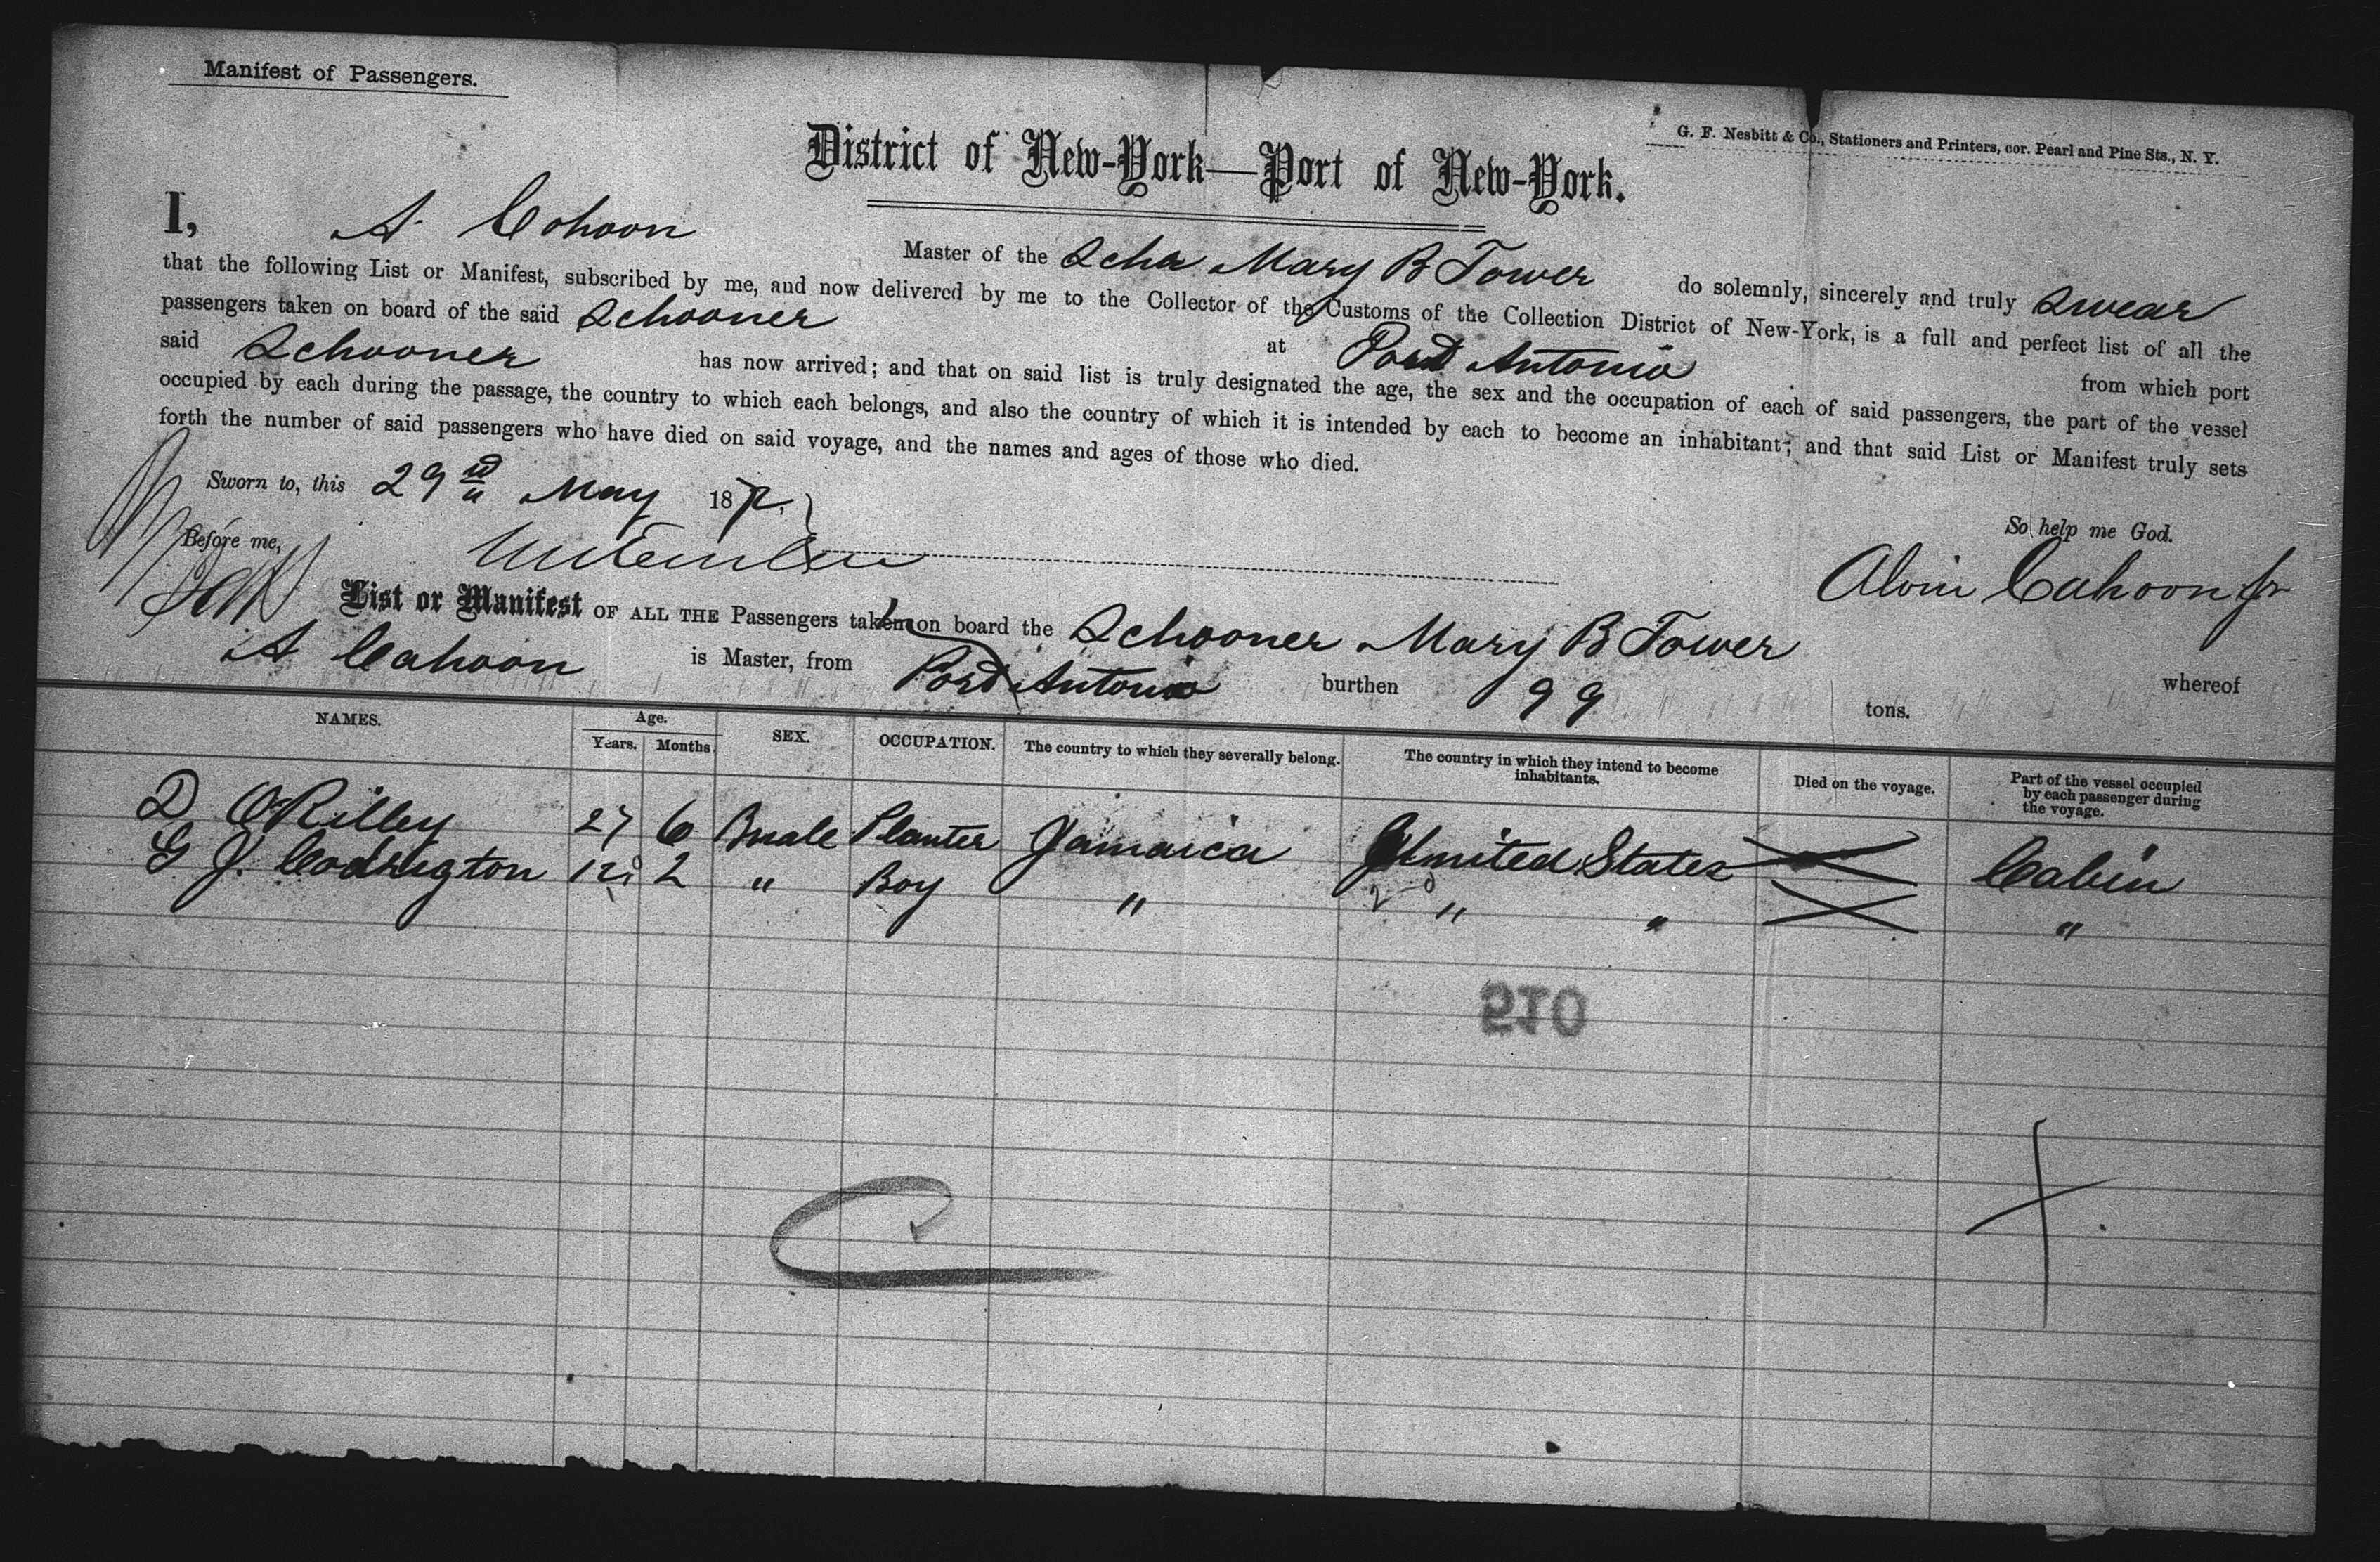 Manifest of Passengers.
G. F. Nesbitt & Co., Stationers and Printers, cor. Pearl and Pine Sts., N. Y.
District of New-York—Port of New-York.
I, A. Cohoon Master of the Schr Mary B Tower do solemnly, sincerely and truly swear
that the following List or Manifest, subscribed by me, and now delivered by me to the Collector of the Customs of the Collection District of New-York, is a full and perfect list of all the
passengers taken on board of the said Schooner at Port Antonio from which port
said Schooner has now arrived; and that on said list is truly designated the age, the sex and the occupation of each of said passengers, the part of the vessel
occupied by each during the passage, the country to which each belongs, and also the country of which it is intended by each to become an inhabitant; and that said List or Manifest truly sets
forth the number of said passengers who have died on said voyage, and the names and ages of those who died.
Sworn to, this 29 May 187
So help me God.
Before me,
Alvin Cahoon Jr
List or Manifest OF ALL THE Passengers taken on board the Schooner Mary B Tower whereof
A Cahoon is Master, from Port Antonio burthen 99 tons.
NAMES. Age. Years. Months. SEX. OCCUPATION. The country to which they severally belong. The country in which they intend to become inhabitants. Died on the voyage. Part of the vessel occupied by each passenger during the voyage.
D O'Rilley 27 6 male Planter Jamaica United States Cabin
G J. Codrington 12 2 " Boy " " " "
510
C